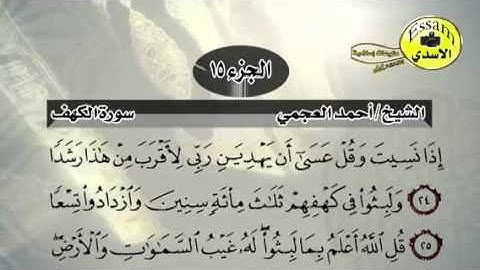 Essam
الأسدي
الجزء ١٥
الشيخ/أحمد العجمي
سورة الكهف
إِذَا نَسِيتَ وَقُلْ عَسَىٰٓ أَن يَهْدِيَنِ رَبِّى لِأَقْرَبَ مِنْ هَٰذَا رَشَدًا
٢٤ وَلَبِثُوا۟ فِى كَهْفِهِمْ ثَلَٰثَ مِا۟ئَةٍ سِنِينَ وَٱزْدَادُوا۟ تِسْعًا
٢٥ قُلِ ٱللَّهُ أَعْلَمُ بِمَا لَبِثُوا۟ لَهُۥ غَيْبُ ٱلسَّمَٰوَٰتِ وَٱلْأَرْضِ